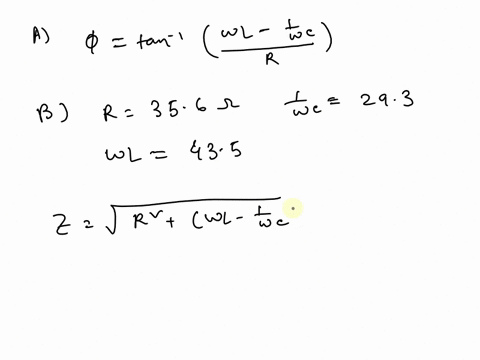 A) φ = tan⁻¹ ( (ωL - 1/ωc) / R )
B) R = 35.6 Ω 1/ωc = 29.3
ωL = 43.5
Z = √(R² + (ωL - 1/ωc